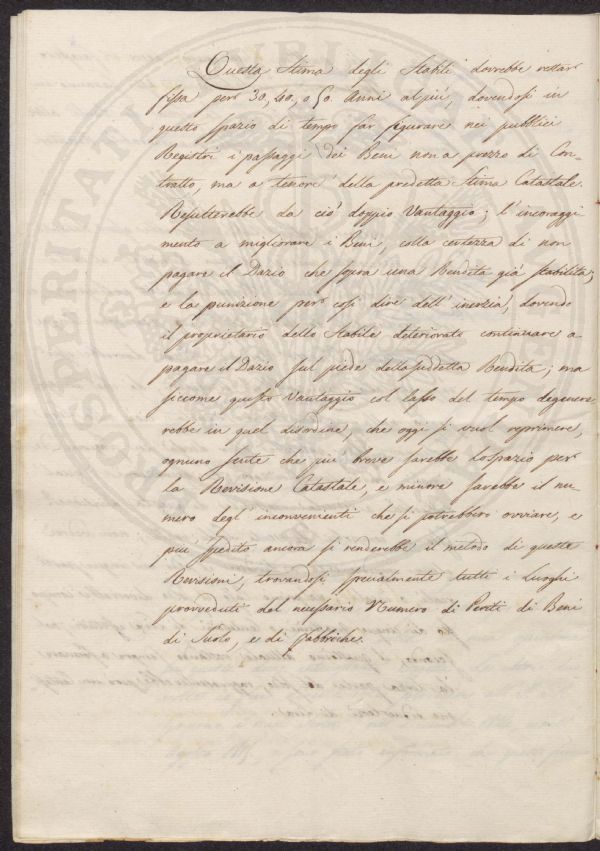 Questa Stima degli Stabili dovrebbe restar
fissa per 30, 40, o 50. Anni al più, dovendosi in
questo spazio di tempo far figurare nei pubblici
Registri i passaggi dei Beni non a prezzo di Con-
tratto, ma a tenore della predetta Stima Catastale.
Resulterebbe da ciò doppio Vantaggio; l'incoraggi
mento a migliorare i Beni, colla certezza di non
pagare il Dazio che sopra una Rendita già stabilita;
e la punizione per così dire dell'inerzia, dovendo
il proprietario dello Stabile deteriorato continuare a
pagare il Dazio sul piede della suddetta Rendita; ma
siccome questo Vantaggio col lasso del tempo degenere
rebbe in quel disordine, che oggi si vuol reprimere,
ognuno sente che più breve sarebbe lo spazio per
la Revisione Catastale, e minore sarebbe il nu-
mero degl'inconvenienti che si potrebbero ovviare, e
più spedito ancora si renderebbe il metodo di queste
Revisioni, trovandosi specialmente tutti i Luoghi
provveduti del necessario Numero di Periti di Beni
di Suolo, e di fabbriche.
PROSPERITATI